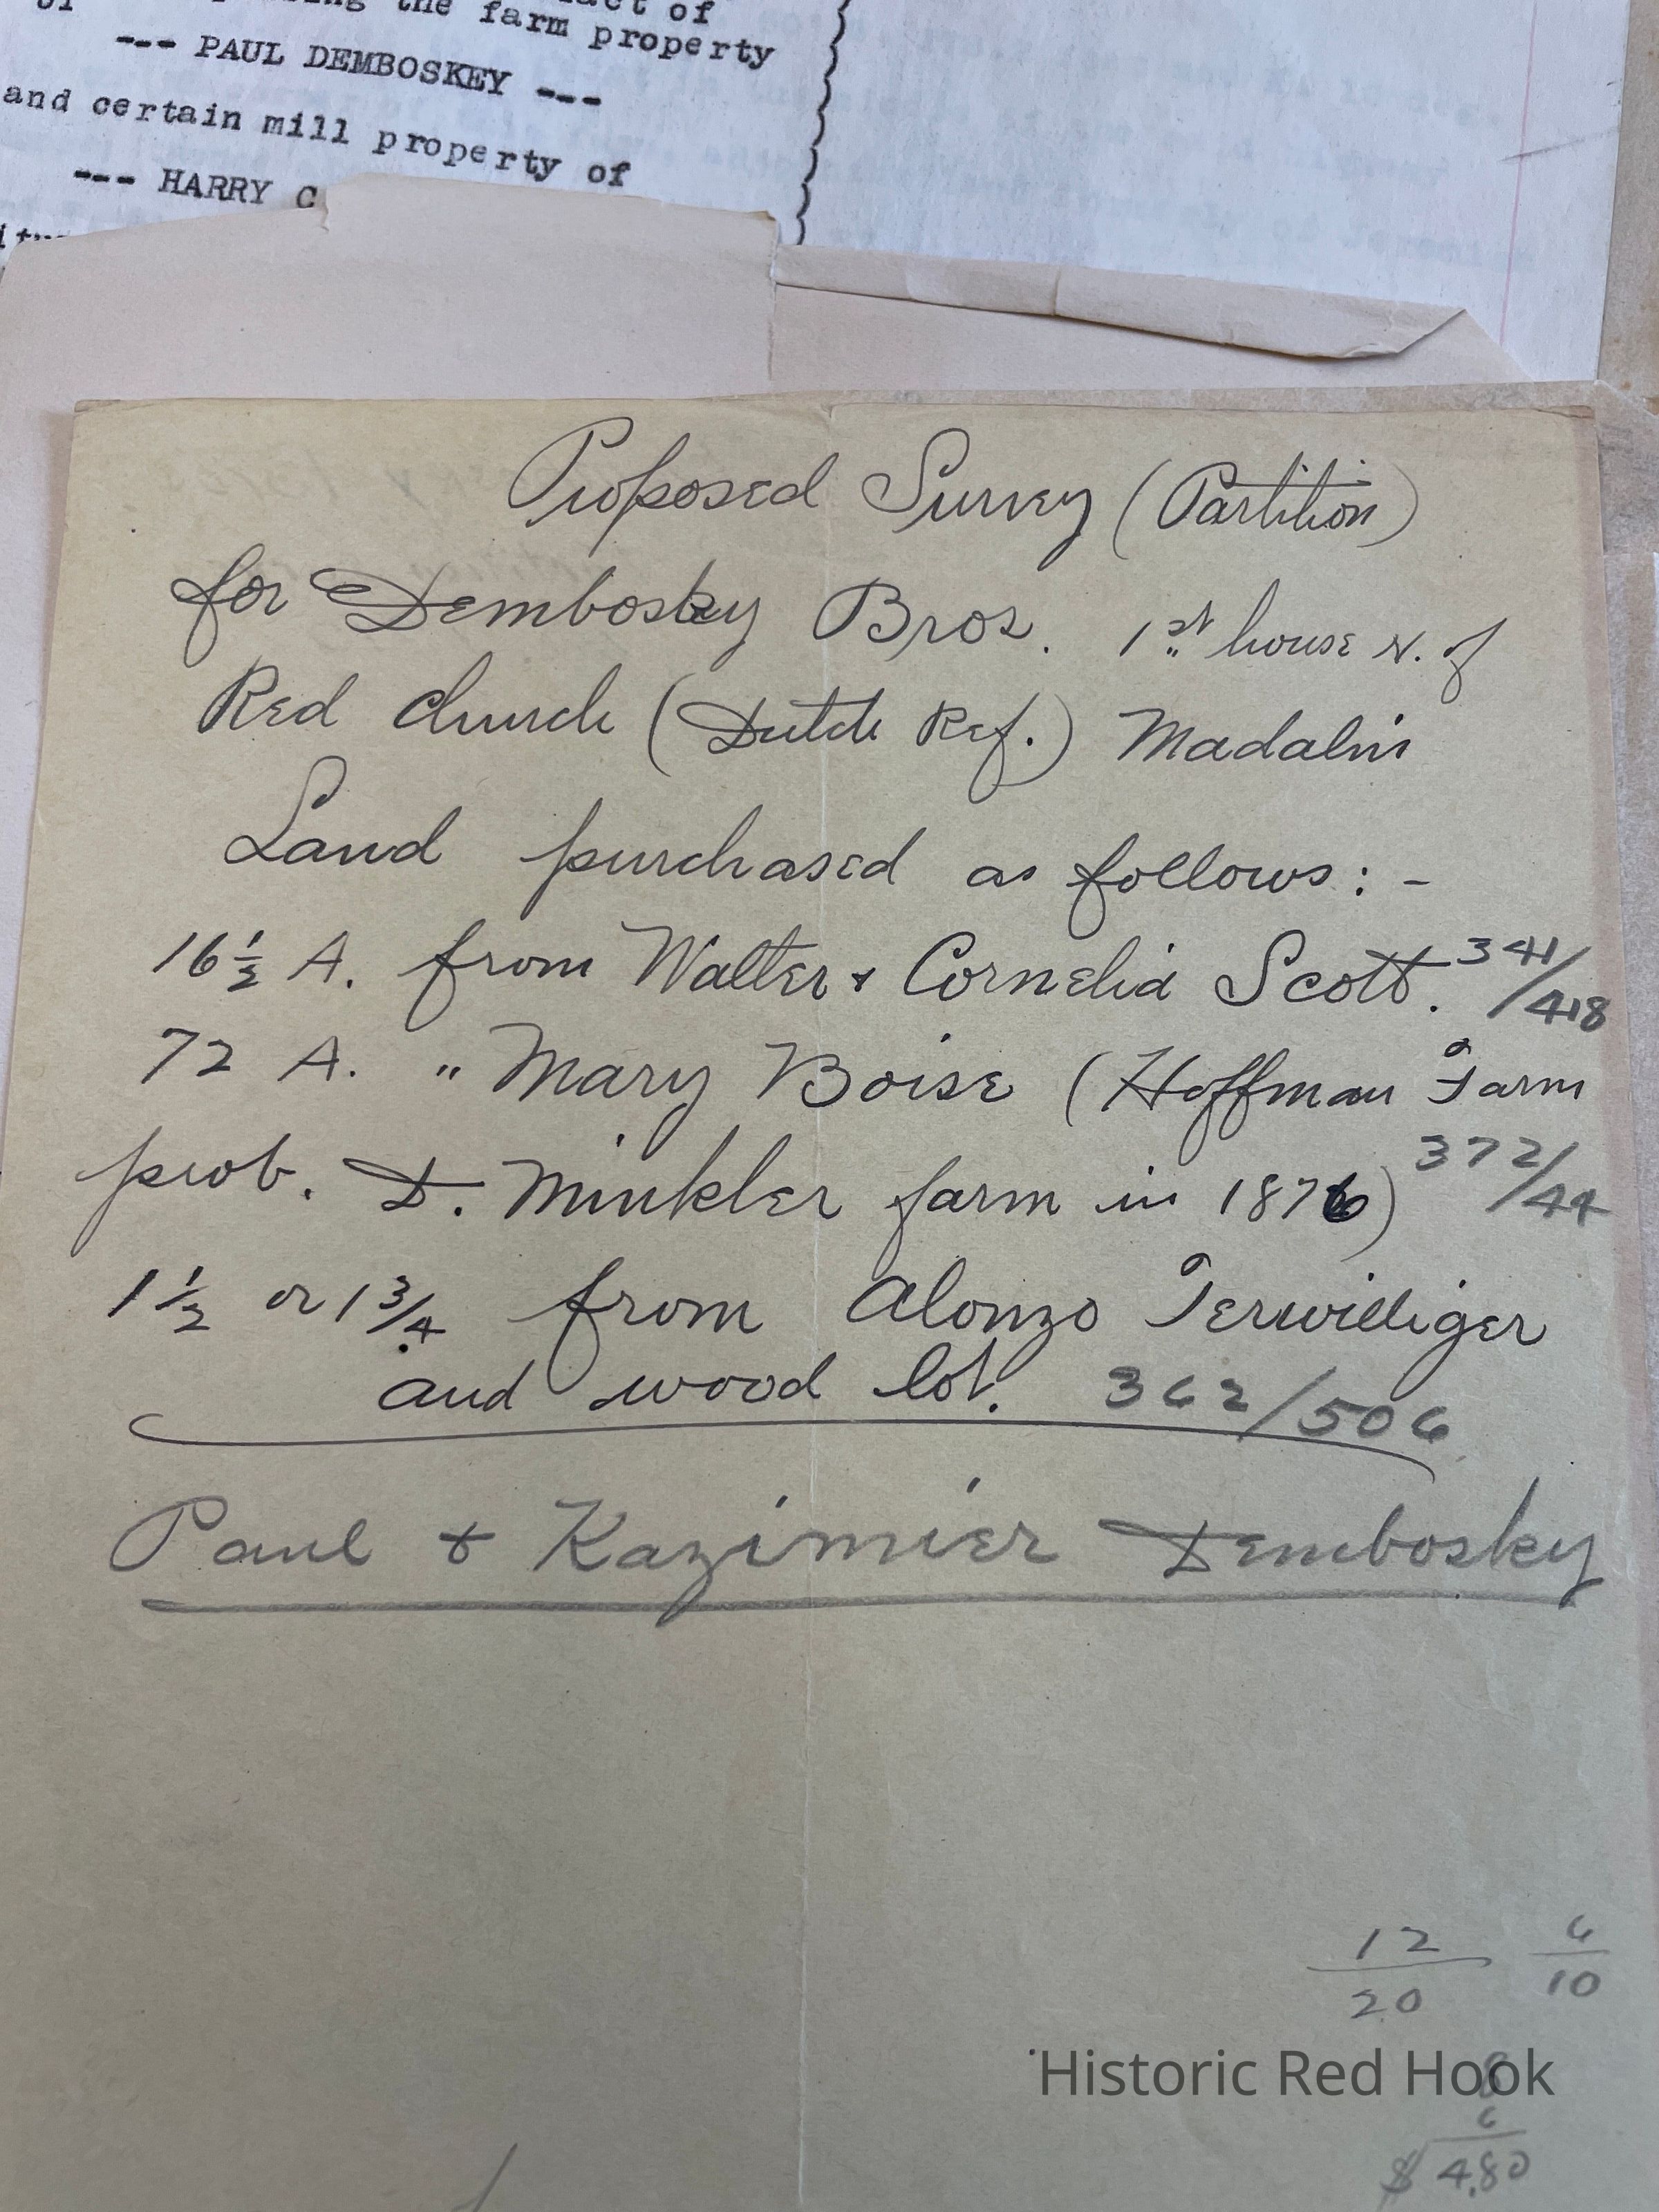 the farm property
--- PAUL DEMBOSKEY ---
and certain mill property of
--- HARRY C
Proposed Survey (Partition)
for Dembosky Bros. 1st house N. of
Red Church (Dutch Ref.) Madalin
Land purchased as follows: -
16 1/2 A. from Walter & Cornelia Scott. 341/418
72 A. " Mary Boise (Hoffman Farm
prob. D. Minkler farm in 1876) 372/44
1 1/2 or 1 3/4 from Alonzo Terwilliger
and wood lot. 362/506
Paul & Kazimier Dembosky
12/20 6/10
Historic Red Hook
6
$ 4.80